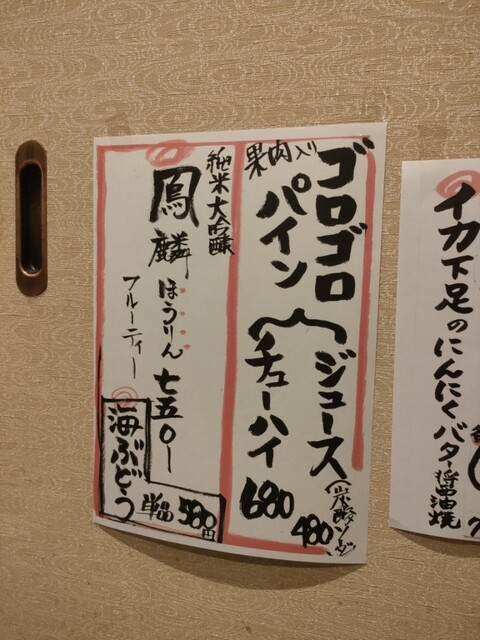 果肉入り
ゴロゴロ
パイン
ジュース
(炭酸
480
チューハイ
680
純米大吟醸
鳳麟
ほうりん
七五〇ー
フルーティー
海ぶどう
単品
580円
イカ下足のにんにくバター醤油焼